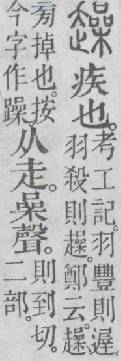 趮疾也。
考工記。羽豐則遟
羽殺則趮。鄭云。趮
㫄掉也。按
今字作躁
从走。喿聲。
則到切。
二部。